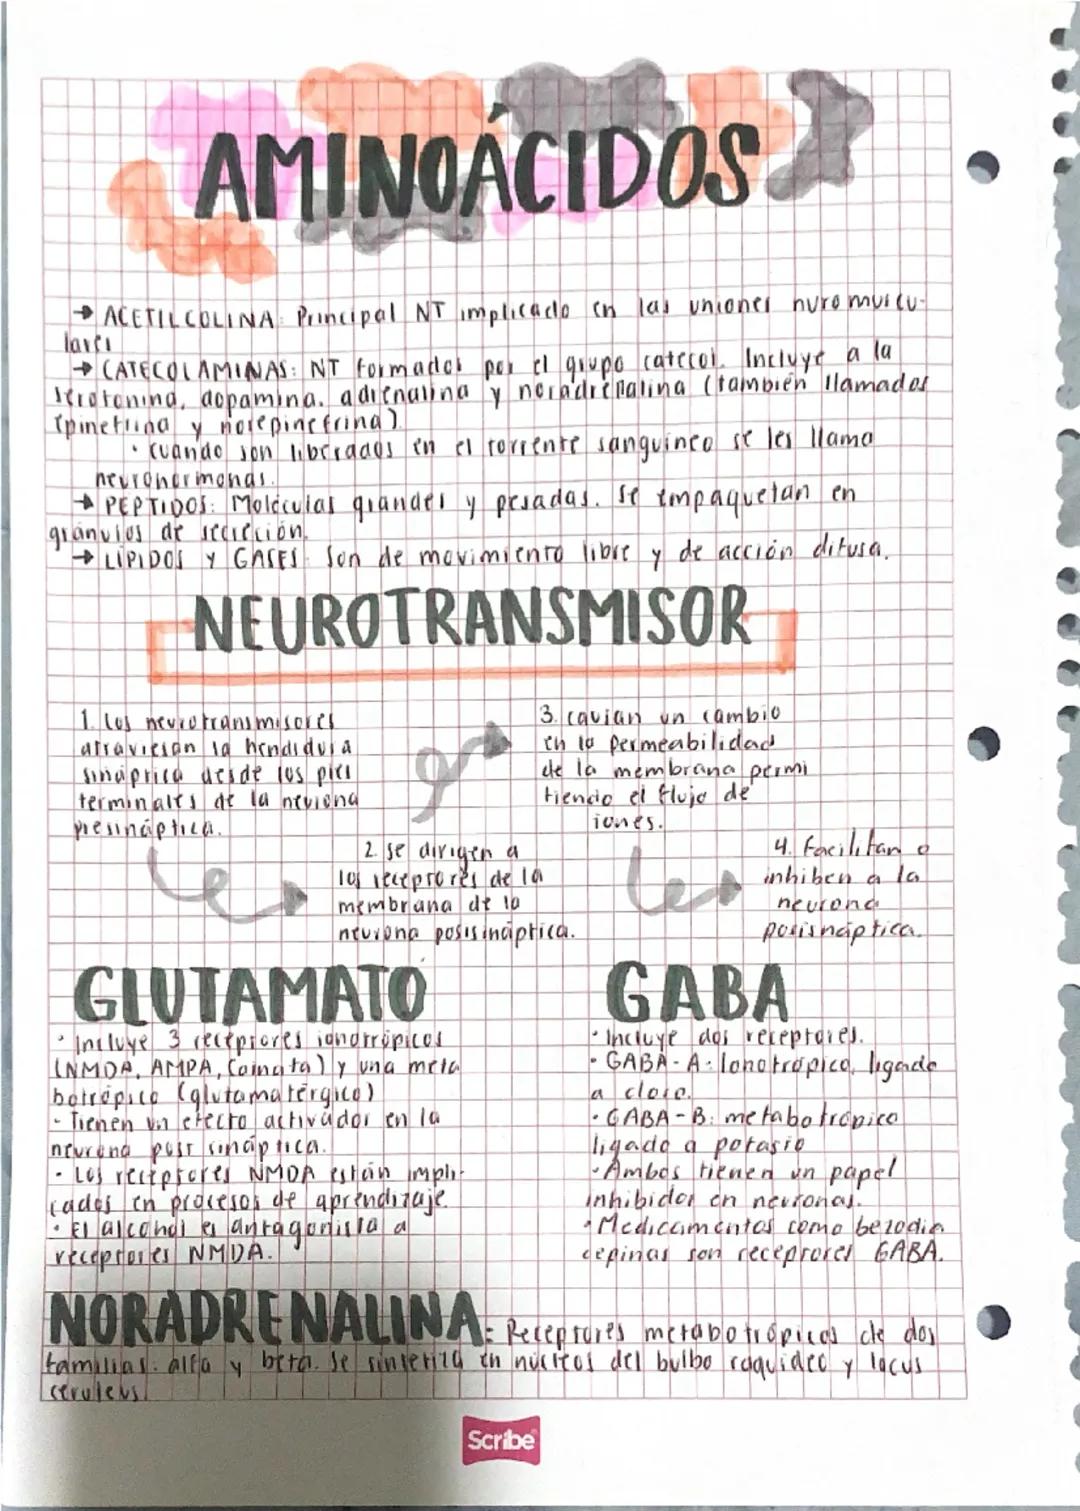 AMINOÁCIDOS
→ ACETILCOLINA: Principal NT implicado en las uniones nuromuscu-
lares
→ CATECOLAMINAS: NT formados por el grupo catecol. Incluye a la
serotonina, dopamina, adrenalina y noradrenalina (también llamadas
epinefrina y norepinefrina)
• Cuando son liberados en el torrente sanguíneo se les llama
neurohormonas.
→ PÉPTIDOS: Moléculas grandes y pesadas. Se empaquetan en
gránulos de secreción.
→ LÍPIDOS Y GASES: Son de movimiento libre y de acción difusa.
NEUROTRANSMISOR
1. Los neurotransmisores
atraviesan la hendidura
sináptica desde los pies
terminales de la neurona
presináptica.
2. se dirigen a
los receptores de la
membrana de la
neurona posisináptica.
3. causan un cambio
en la permeabilidad
de la membrana permi
tiendo el flujo de
iones.
4. Facilitan o
inhiben a la
neurona
posisnáptica.
GLUTAMATO
• Incluye 3 receptores ionotrópicos
(NMDA, AMPA, Coinata) y una meta
botrópico (glutamatérgico)
- Tienen un efecto activador en la
neurona post sináptica.
• Los receptores NMDA están impli-
cados en procesos de aprendizaje.
• El alcohol es antagonista a
receptores NMDA.
GABA
• Incluye dos receptores.
• GABA-A: Ionotrópico, ligado
a cloro.
• GABA-B: metabotrópico
ligado a potasio
• Ambos tienen un papel
inhibidor en neuronas.
• Medicamentos como bezodia
cepinas son receptores GABA.
NORADRENALINA: Receptores metabotrópicos de dos
familias: alfa y beta. Se sintetiza en núcleos del bulbo raquídeo y locus
ceruleus.
Scribe